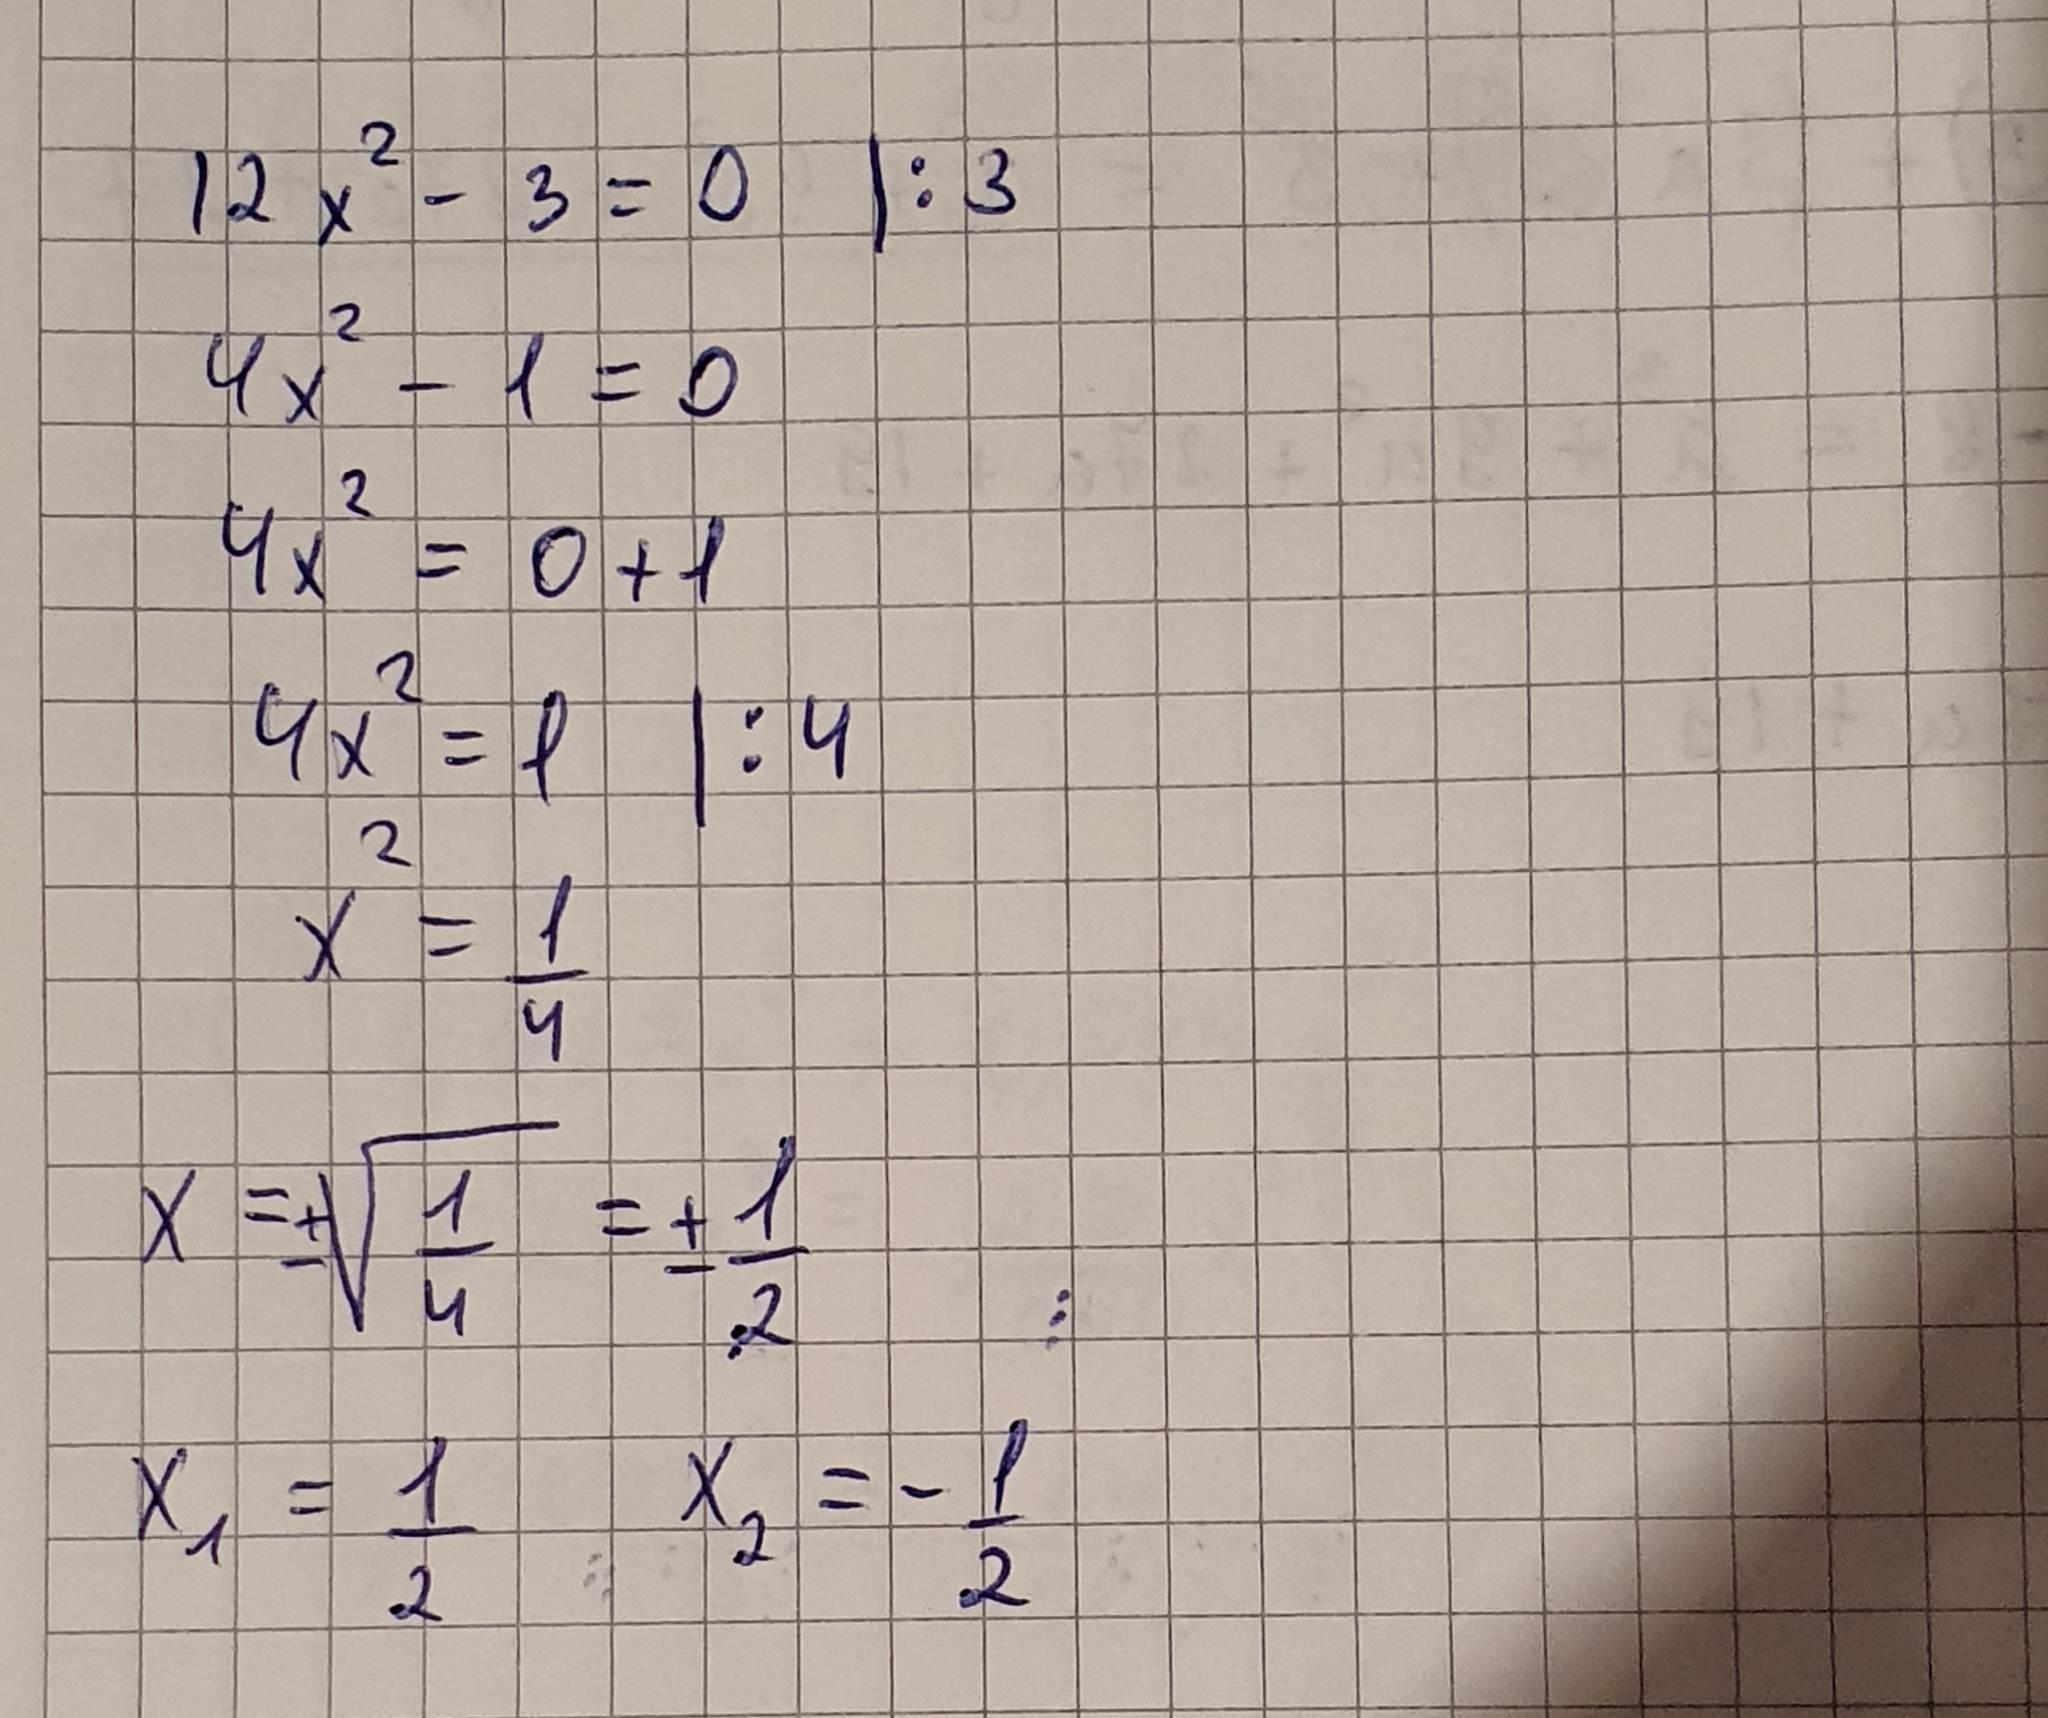 12x² - 3 = 0 |: 3
4x² - 1 = 0
4x² = 0 + 1
4x² = 1 |: 4
x² = 1/4
x = ±√(1/4) = ± 1/2
x₁ = 1/2 x₂ = - 1/2